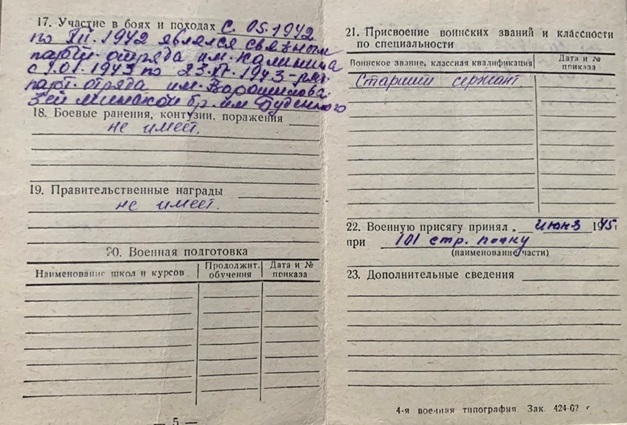 17. Участие в боях и походах С. 05.1942
по XII. 1942 являлся связным
парт. отряда им. Калинина
с 1.01.1943 по
парт. отряда им. Ворошилова
Минской бр. им. Буденного
18. Боевые ранения, контузии, поражения
не имеет.
19. Правительственные награды
не имеет.
20. Военная подготовка
Наименование школ и курсов
Продолжит. обучения
Дата и № приказа
— 5 —
21. Присвоение воинских званий и классности
по специальности
Воинское звание, классная квалификация
Дата и №
приказа
Старший сержант
22. Военную присягу принял 1945
при 101 стр. полку
(наименование части)
23. Дополнительные сведения
4-я военная типография Зак. 424-67